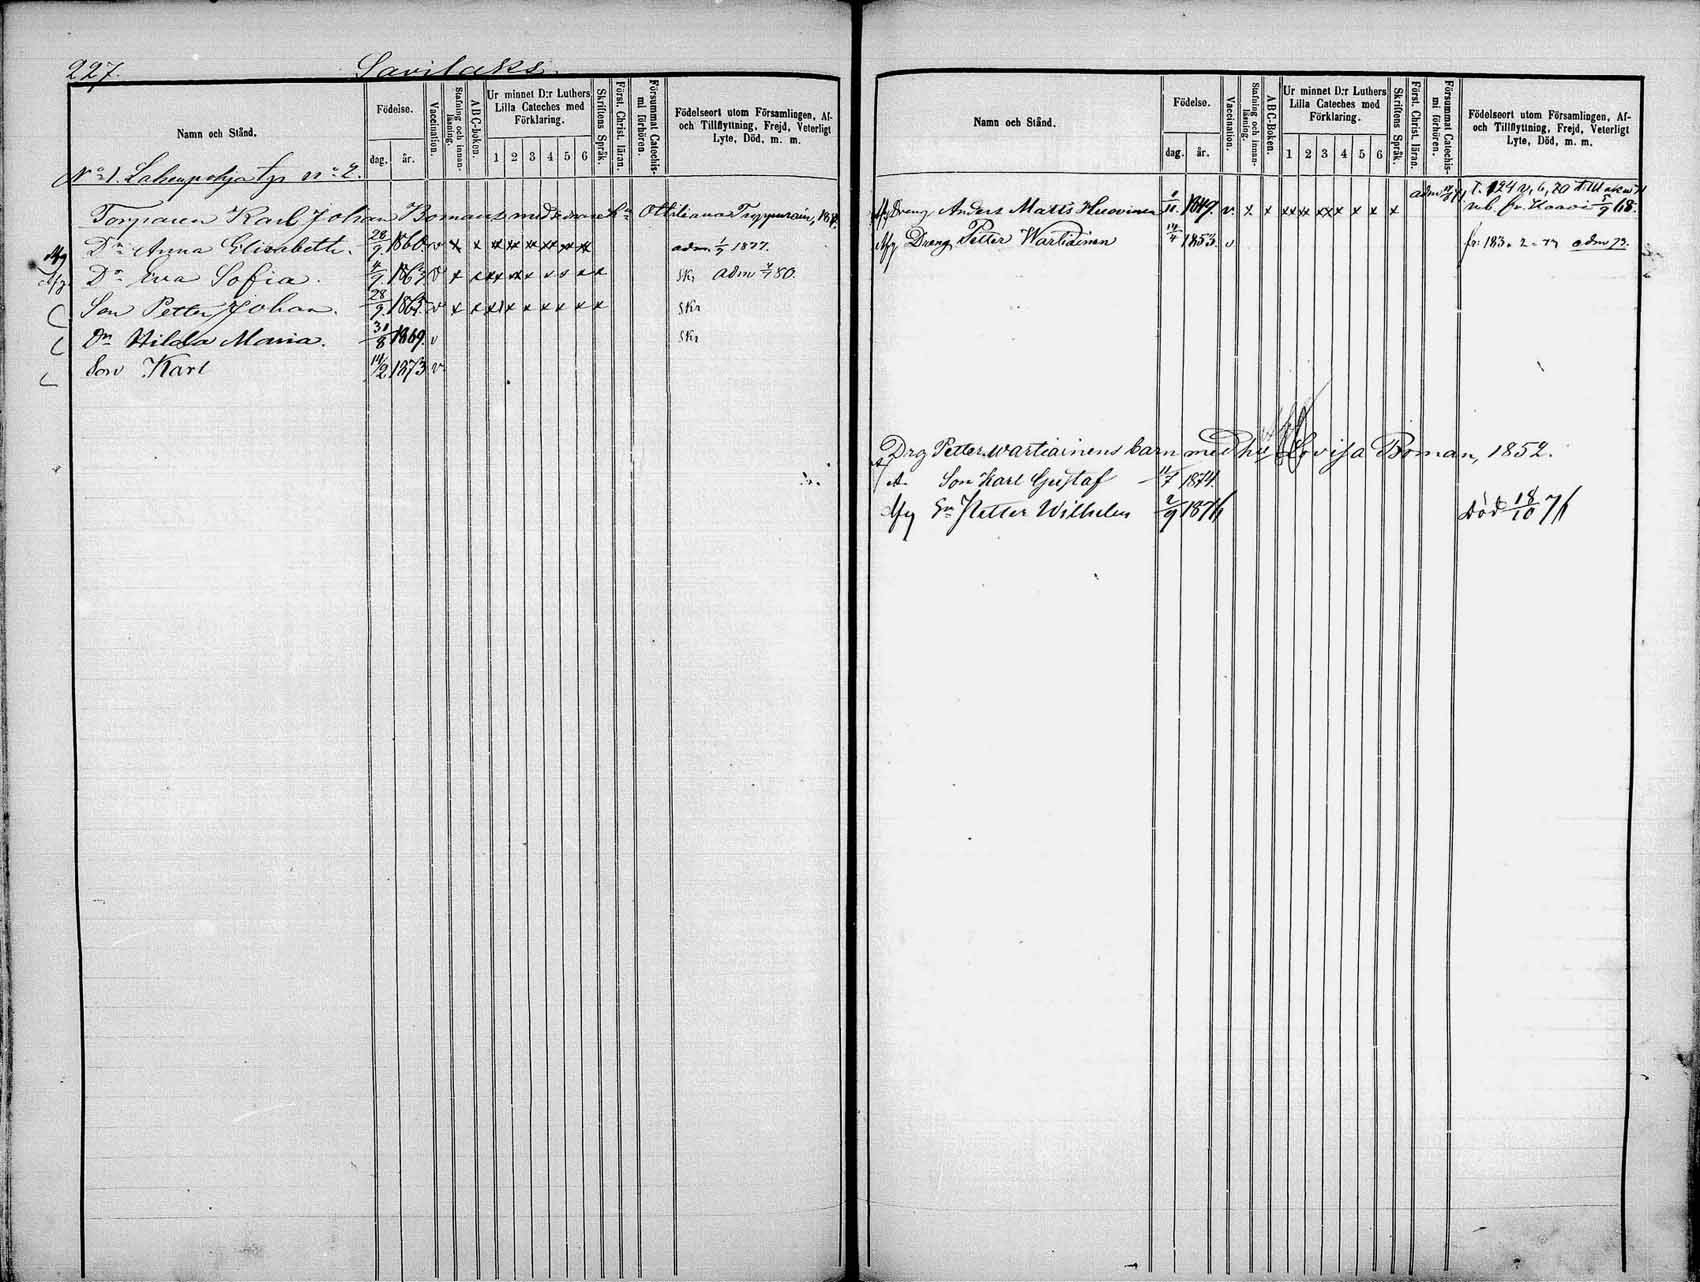 227. Savilaks.
Namn och Stånd.
Födelse.
dag. år.
Vaccination.
Stafning och innan-läsning.
ABC-boken.
Ur minnet D:r Luthers Lilla Cateches med Förklaring.
1 2 3 4 5 6
Skriftens Språk.
Först. Christ. läran.
Försummat Catechis-mi förhören.
Födelseort utom Församlingen, Af- och Tillflyttning, Frejd, Veterligt Lyte, Död, m. m.
No 1. Lahenpohja tp no 2.
Torparen Karl Johan Bomans med hu Ottiliana Tuppurain,
Afg Dr Anna Elisabeth. 28/9. 1860. v x x xx xx xx xx xx xx adm. 1877.
Afg Dr Eva Sofia. 1863. v x x xx xx x v s x x Skr adm 80.
Son Petter Johan. 28/9. 1865. v x x x x x x x x x Skr
Dr Hilda Maria. 31/8 1869. v Skr
Son Karl 14/2 1873 v
Namn och Stånd.
Födelse.
dag. år.
Vaccination.
Stafning och innan-läsning.
ABC-Boken.
Ur minnet D:r Luthers Lilla Cateches med Förklaring.
1 2 3 4 5 6
Skriftens Språk.
Först. Christ. läran.
Försummat Catechis-mi förhören.
Födelseort utom Församlingen, Af- och Tillflyttning, Frejd, Veterligt Lyte, Död, m. m.
Afg Dreng Anders Matts Huovinen 1849. v. x x xx xx x x x x adm 71 fr. Kaavi 5/9 68.
Afg Dreng Petter Wartiainen 14/4 1853. v fr. 183. 2 - 77 adm 73.
Drg Petter Wartiainens barn med hu Lovisa Boman, 1852.
Son Karl Gustaf 11/7 1874
Afg Sn Petter Wilhelm 2/9 1876 Död 18/10 76